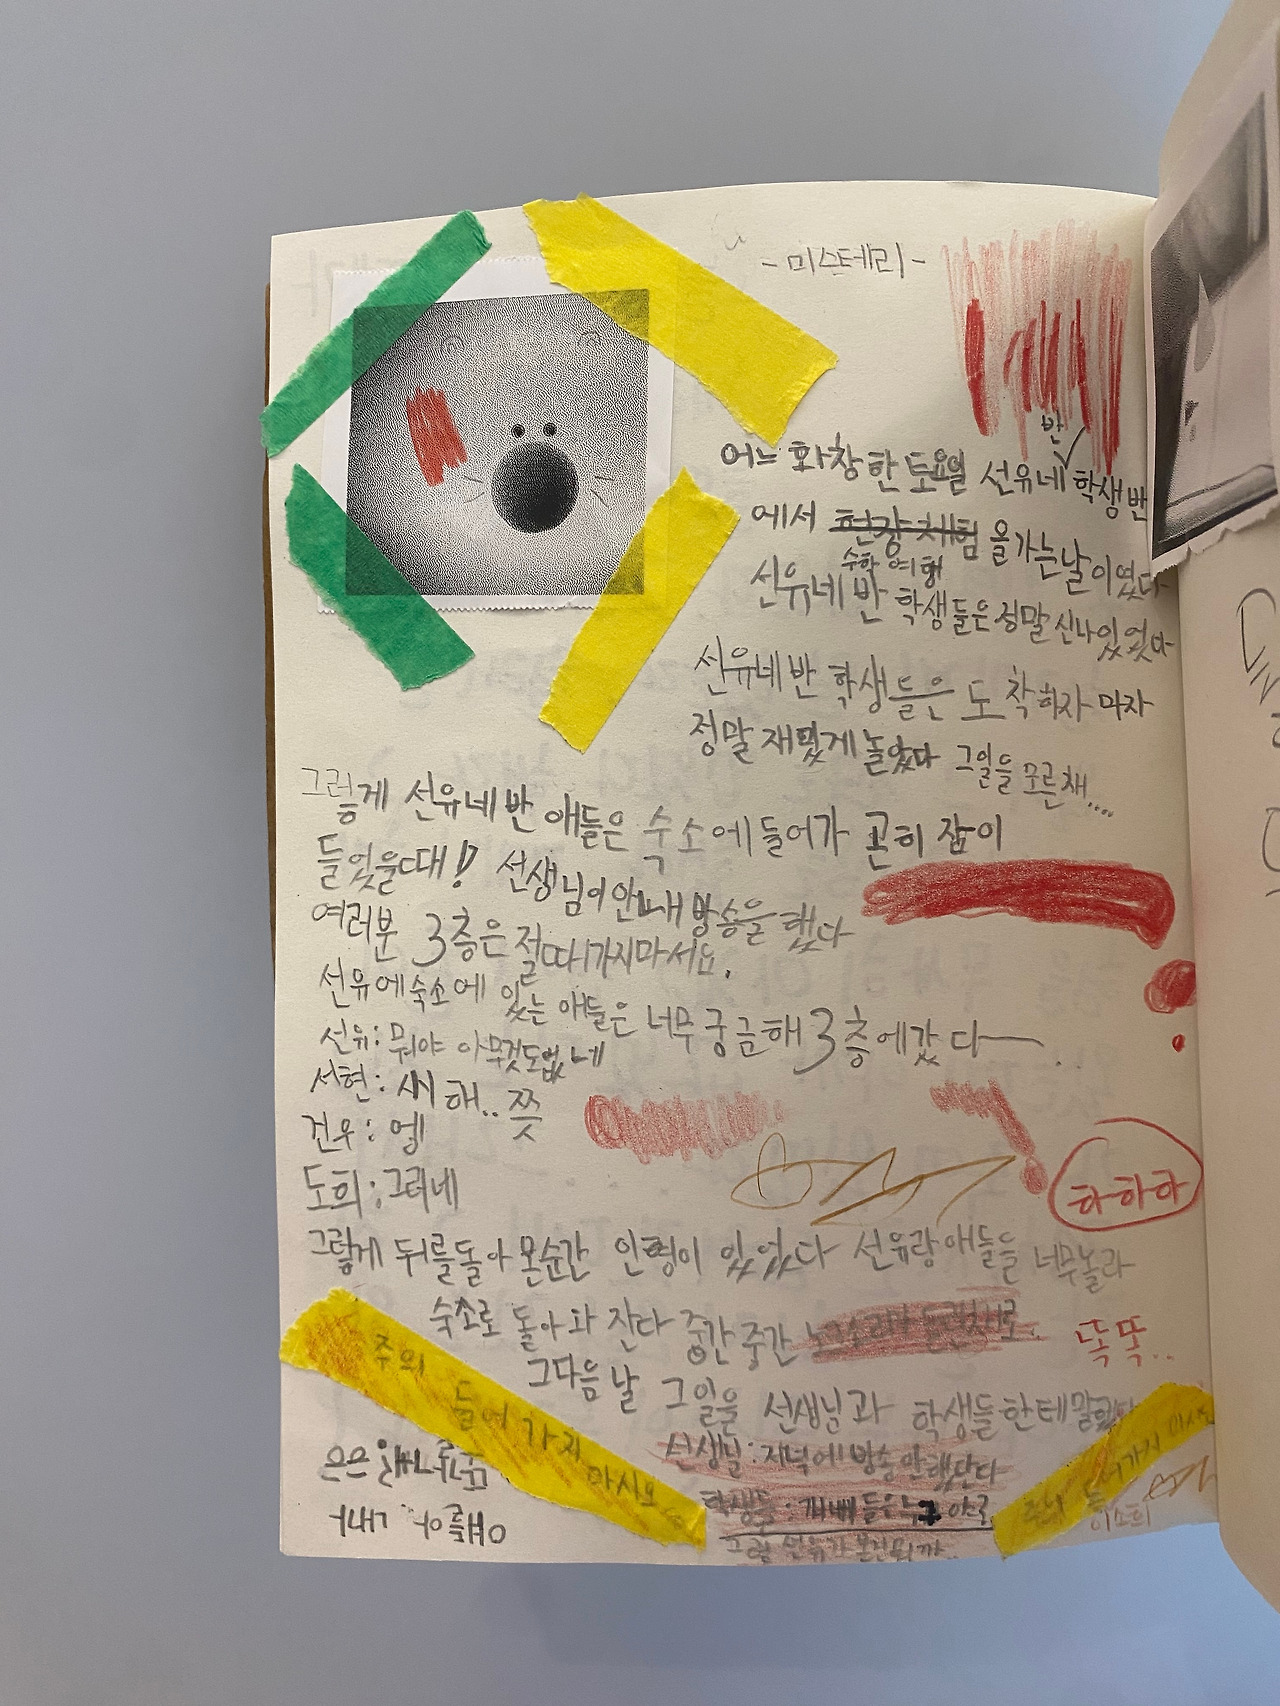 - 미스테리 -
어느 화창한 토요일 선유네 반 학생반
에서 현장체험 수학여행 을가는날이였다
선유네 반 학생들은 정말 신나있었다
선유네반 학생들은 도착하자 마자
정말 재밌게 놀았다 그일을 모른채....
그렇게 선유네반 애들은 숙소에들어가 곤히 잠이
들었을때! 선생님이안내방송을했다
여러분 3층은절때가지마세요.
선유에숙소에 있는 애들은 너무궁금해 3층에갔다 .
선유: 뭐야 아무것도없네
서현: 쎄해.. 쯧
건우: 엥
도희: 그러네
하하하
그렇게 뒤를돌아 본순간 인형이 있었다 선유랑애들을 너무놀라
숙소로 돌아와 잔다 중간중간
똑똑..
그다음날 그일을 선생님과 학생들한테말했다
선생님: 저녁에방송안했단다
학생들: 개네들은누구야로
그럼 선유가 본건뭐까..
주의
들어가지
마시오
주의 들어가지 마시오